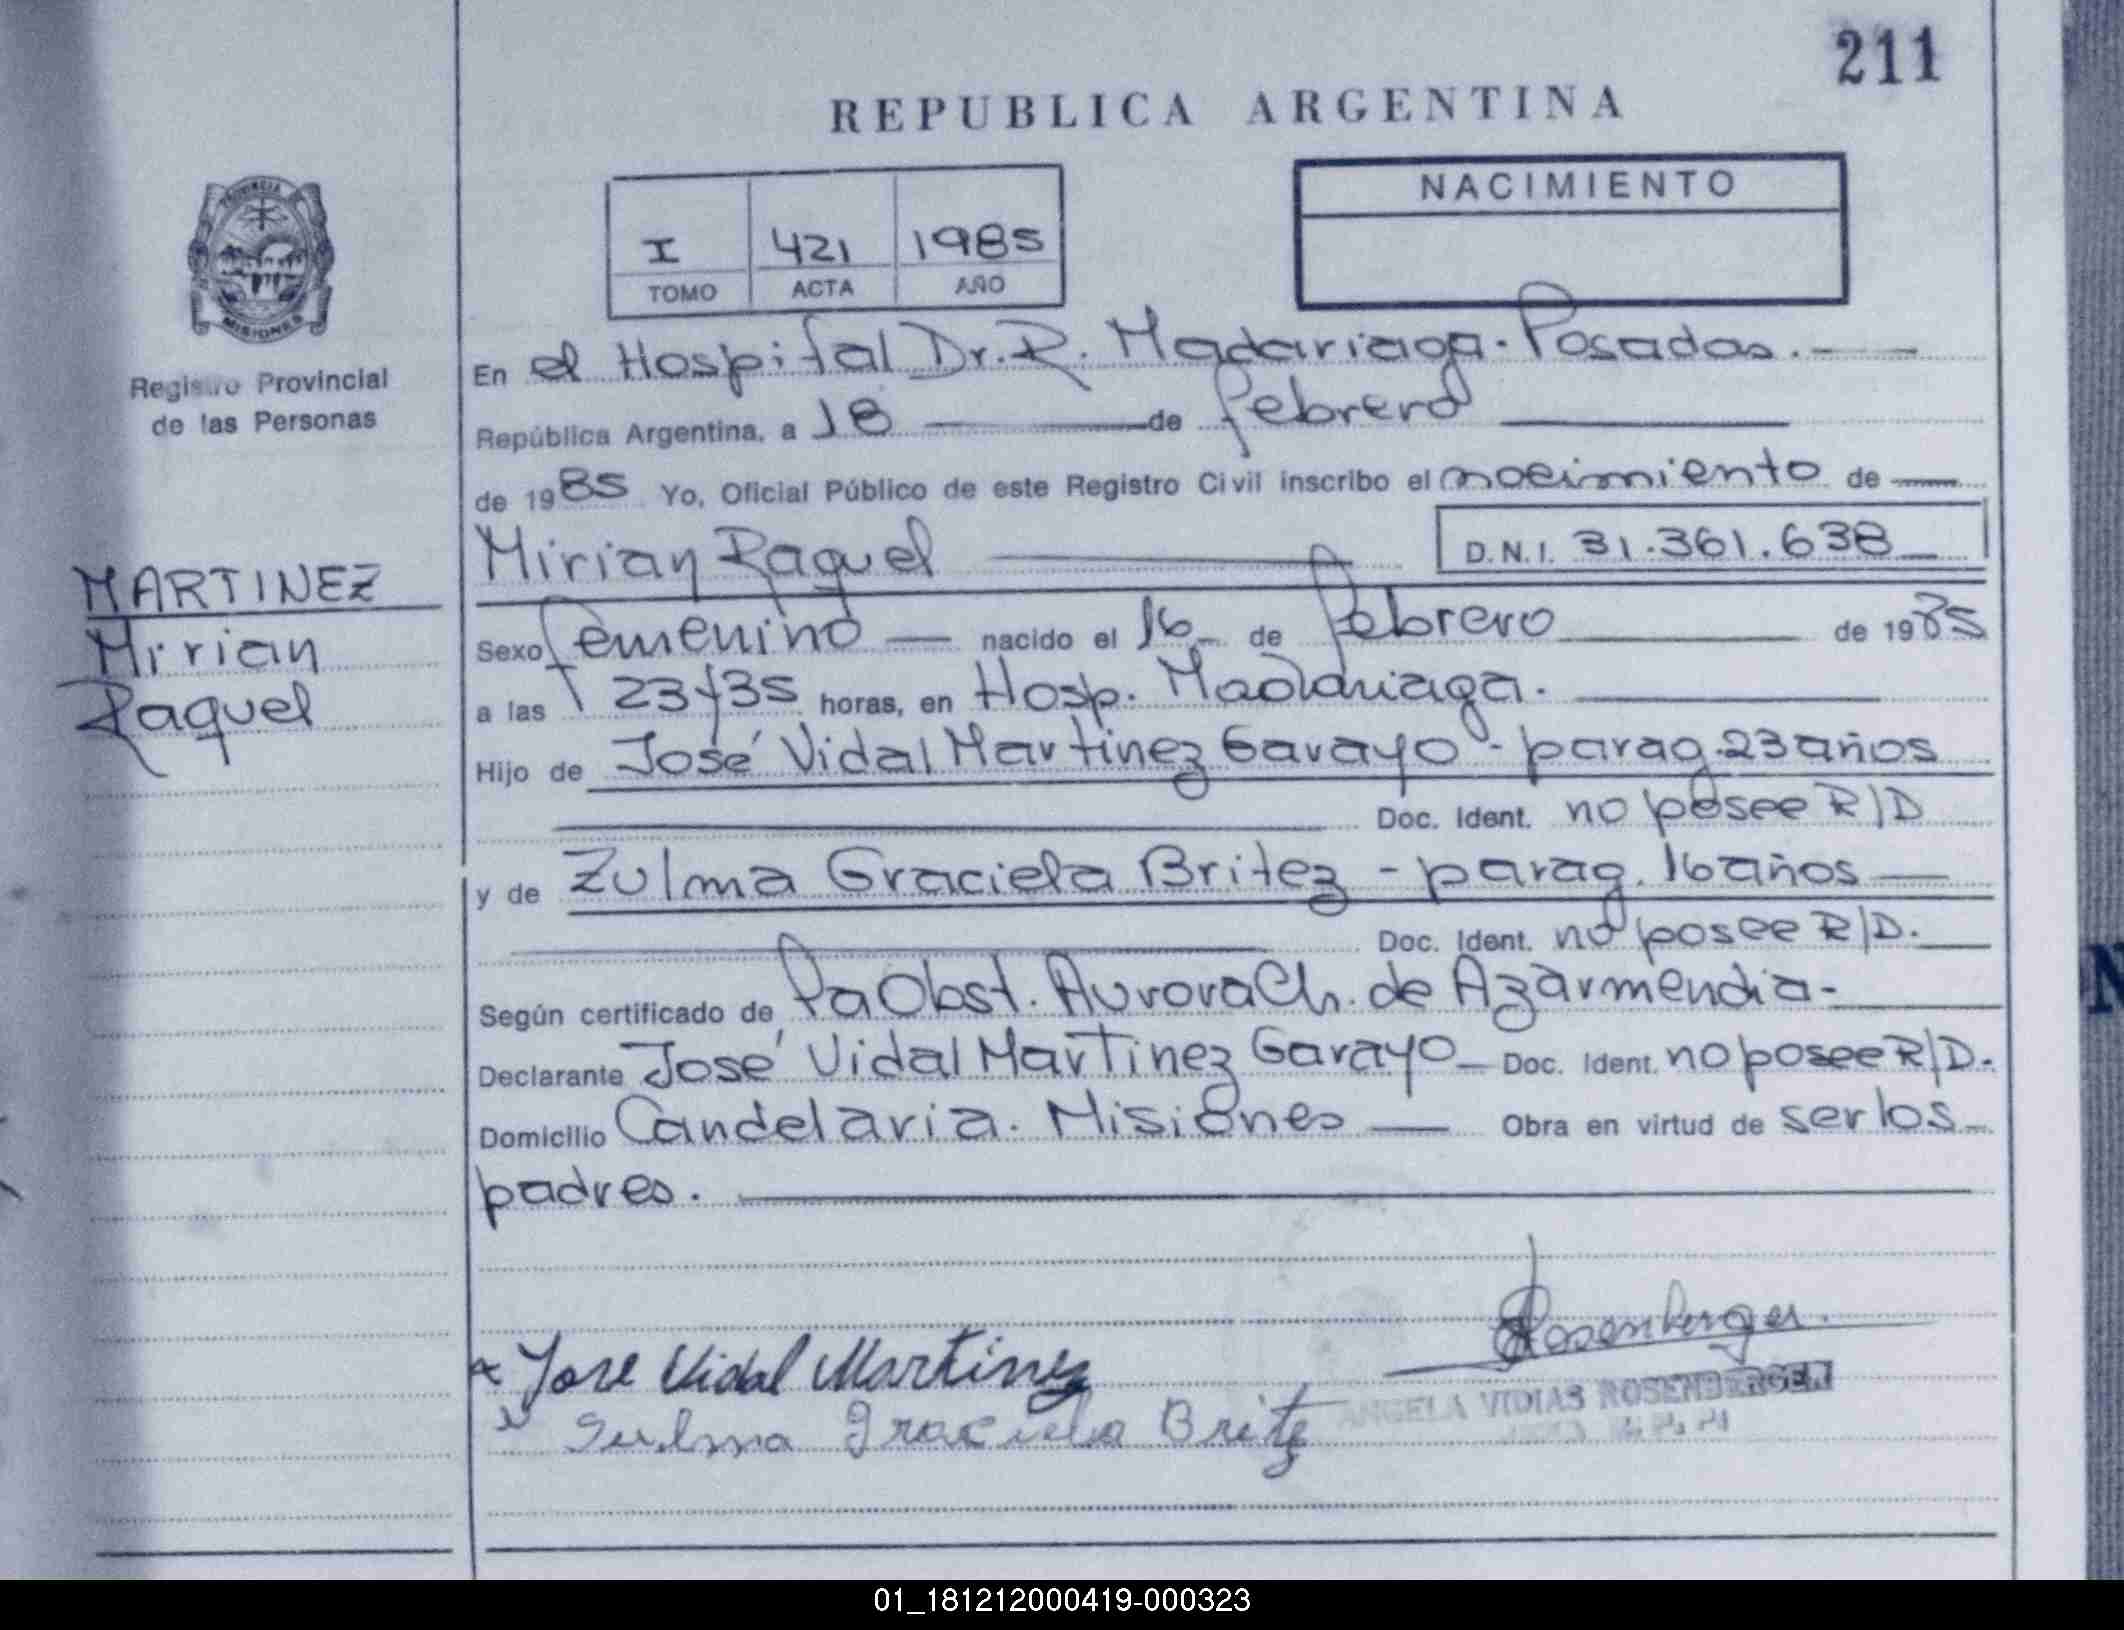 211
REPUBLICA ARGENTINA
NACIMIENTO
I 421 1985
TOMO ACTA AÑO
PROVINCIA
MISIONES
Registro Provincial
de las Personas
En el Hospital Dr. R. Madariaga. Posadas.
República Argentina, a 18 de febrero
de 1985 Yo, Oficial Público de este Registro Civil inscribo el nacimiento de
Mirian Raquel D.N.I. 31.361.638
MARTINEZ
Mirian
Raquel
Sexo femenino nacido el 16 de febrero de 1985
a las 23y35 horas, en Hosp. Madariaga.
Hijo de José Vidal Martinez Garayo - parag. 23 años
Doc. Ident. no posee R/D
y de Zulma Graciela Britez - parag. 16 años
Doc. Ident. no posee R/D.
Según certificado de Pa Obst. Aurora Ch. de Azarmendia -
Declarante José Vidal Martinez Garayo Doc. Ident. no posee R/D.
Domicilio Candelaria. Misiones Obra en virtud de ser los
padres.
Rosenberger
x Jose Vidal Martinez
ANGELA VIDIAS ROSENBERGER
x Sulma Graciela Britz
N
01_181212000419-000323